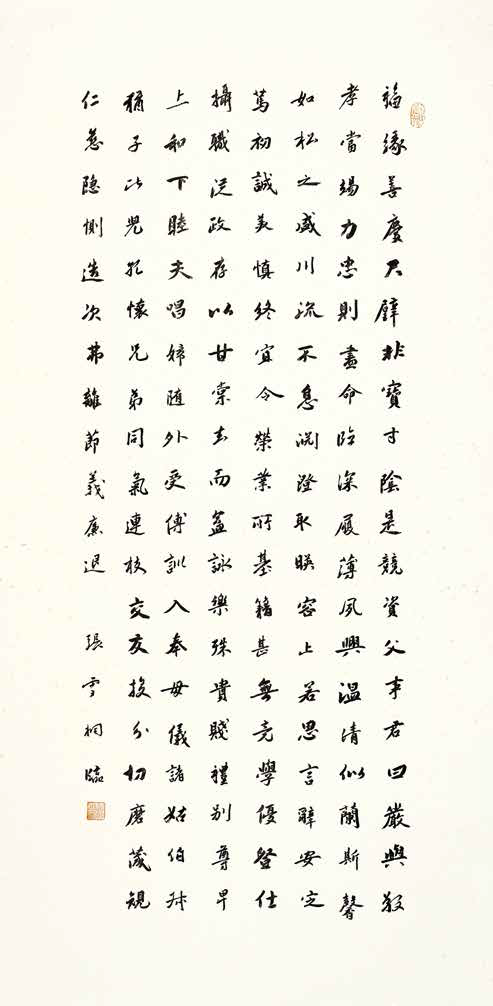 福緣善慶尺璧非寶寸陰是競資父事君曰嚴與敬
孝當竭力忠則盡命臨深履薄夙興溫清似蘭斯馨
如松之盛川流不息淵澄取暎容止若思言辭安定
篤初誠美慎終宜令榮業所基籍甚無竟學優登仕
攝職從政存以甘棠去而益詠樂殊貴賤禮別尊卑
上和下睦夫唱婦随外受傅訓入奉母儀諸姑伯叔
猶子比兒孔懷兄弟同氣連枝交友投分切磨箴規
仁慈隐惻造次弗離節義廉退 張雪桐臨